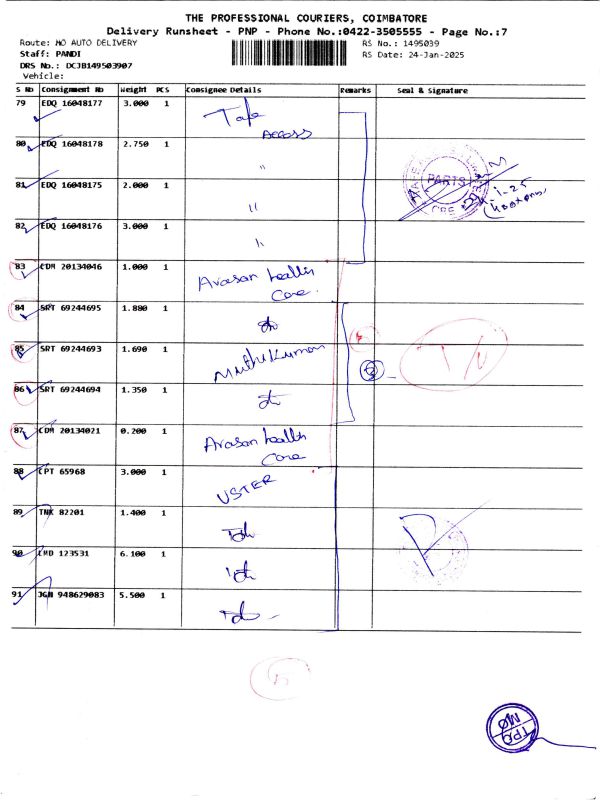 THE PROFESSIONAL COURIERS, COIMBATORE
Delivery Runsheet - PNP - Phone No.:0422-3505555 - Page No.:7
Route: MO AUTO DELIVERY RS No.: 1495039
Staff: PANDI RS Date: 24-Jan-2025
DRS No.: DCJB149503907
Vehicle:
S No Consignment No Weight PCS Consignee Details Remarks Seal & Signature
79 EDQ 16048177 3.000 1
Access
80 EDQ 16048178 2.750 1 "
PARTS
81 EDQ 16048175 2.000 1 "
82 EDQ 16048176 3.000 1 "
83 CDM 20134046 1.000 1 Arasan health
Care.
84 SRT 69244695 1.880 1
85 SRT 69244693 1.690 1 Muthukumar
86 SRT 69244694 1.350 1
87 CDM 20134021 0.200 1 Arasan health
Care
88 CPT 65968 3.000 1 USTER
89 TNK 82201 1.400 1
90 LMD 123531 6.100 1
91 JGM 948629083 5.500 1
TPC
MO